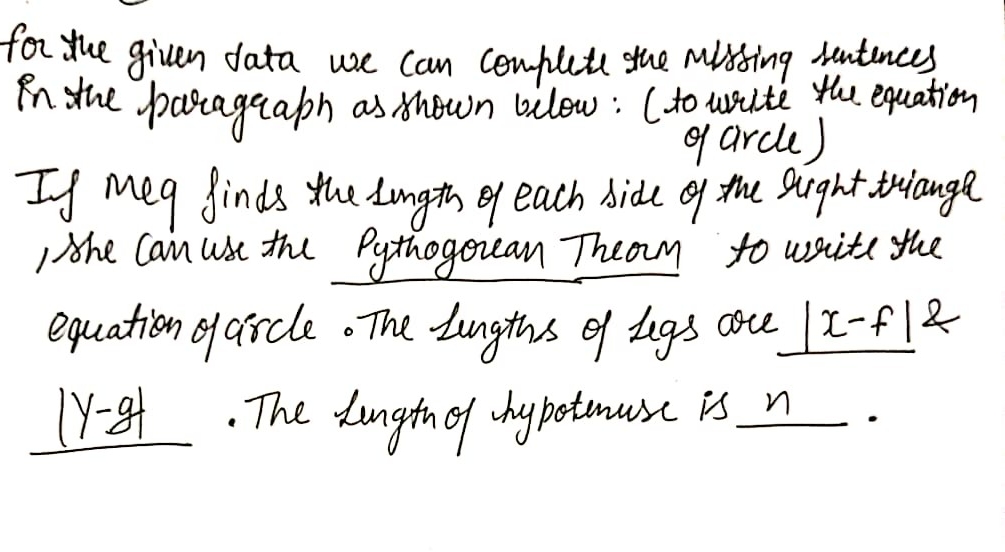 for the given data we can complete the missing sentences
in the paragraph as shown below : ( to write the equation
of circle )
If Meg finds the length of each side of the right triangle
, she can use the Pythogorean Theorm to write the
equation of circle . The lengths of legs are |x-f| &
|y-g| . The length of hypotenuse is n .